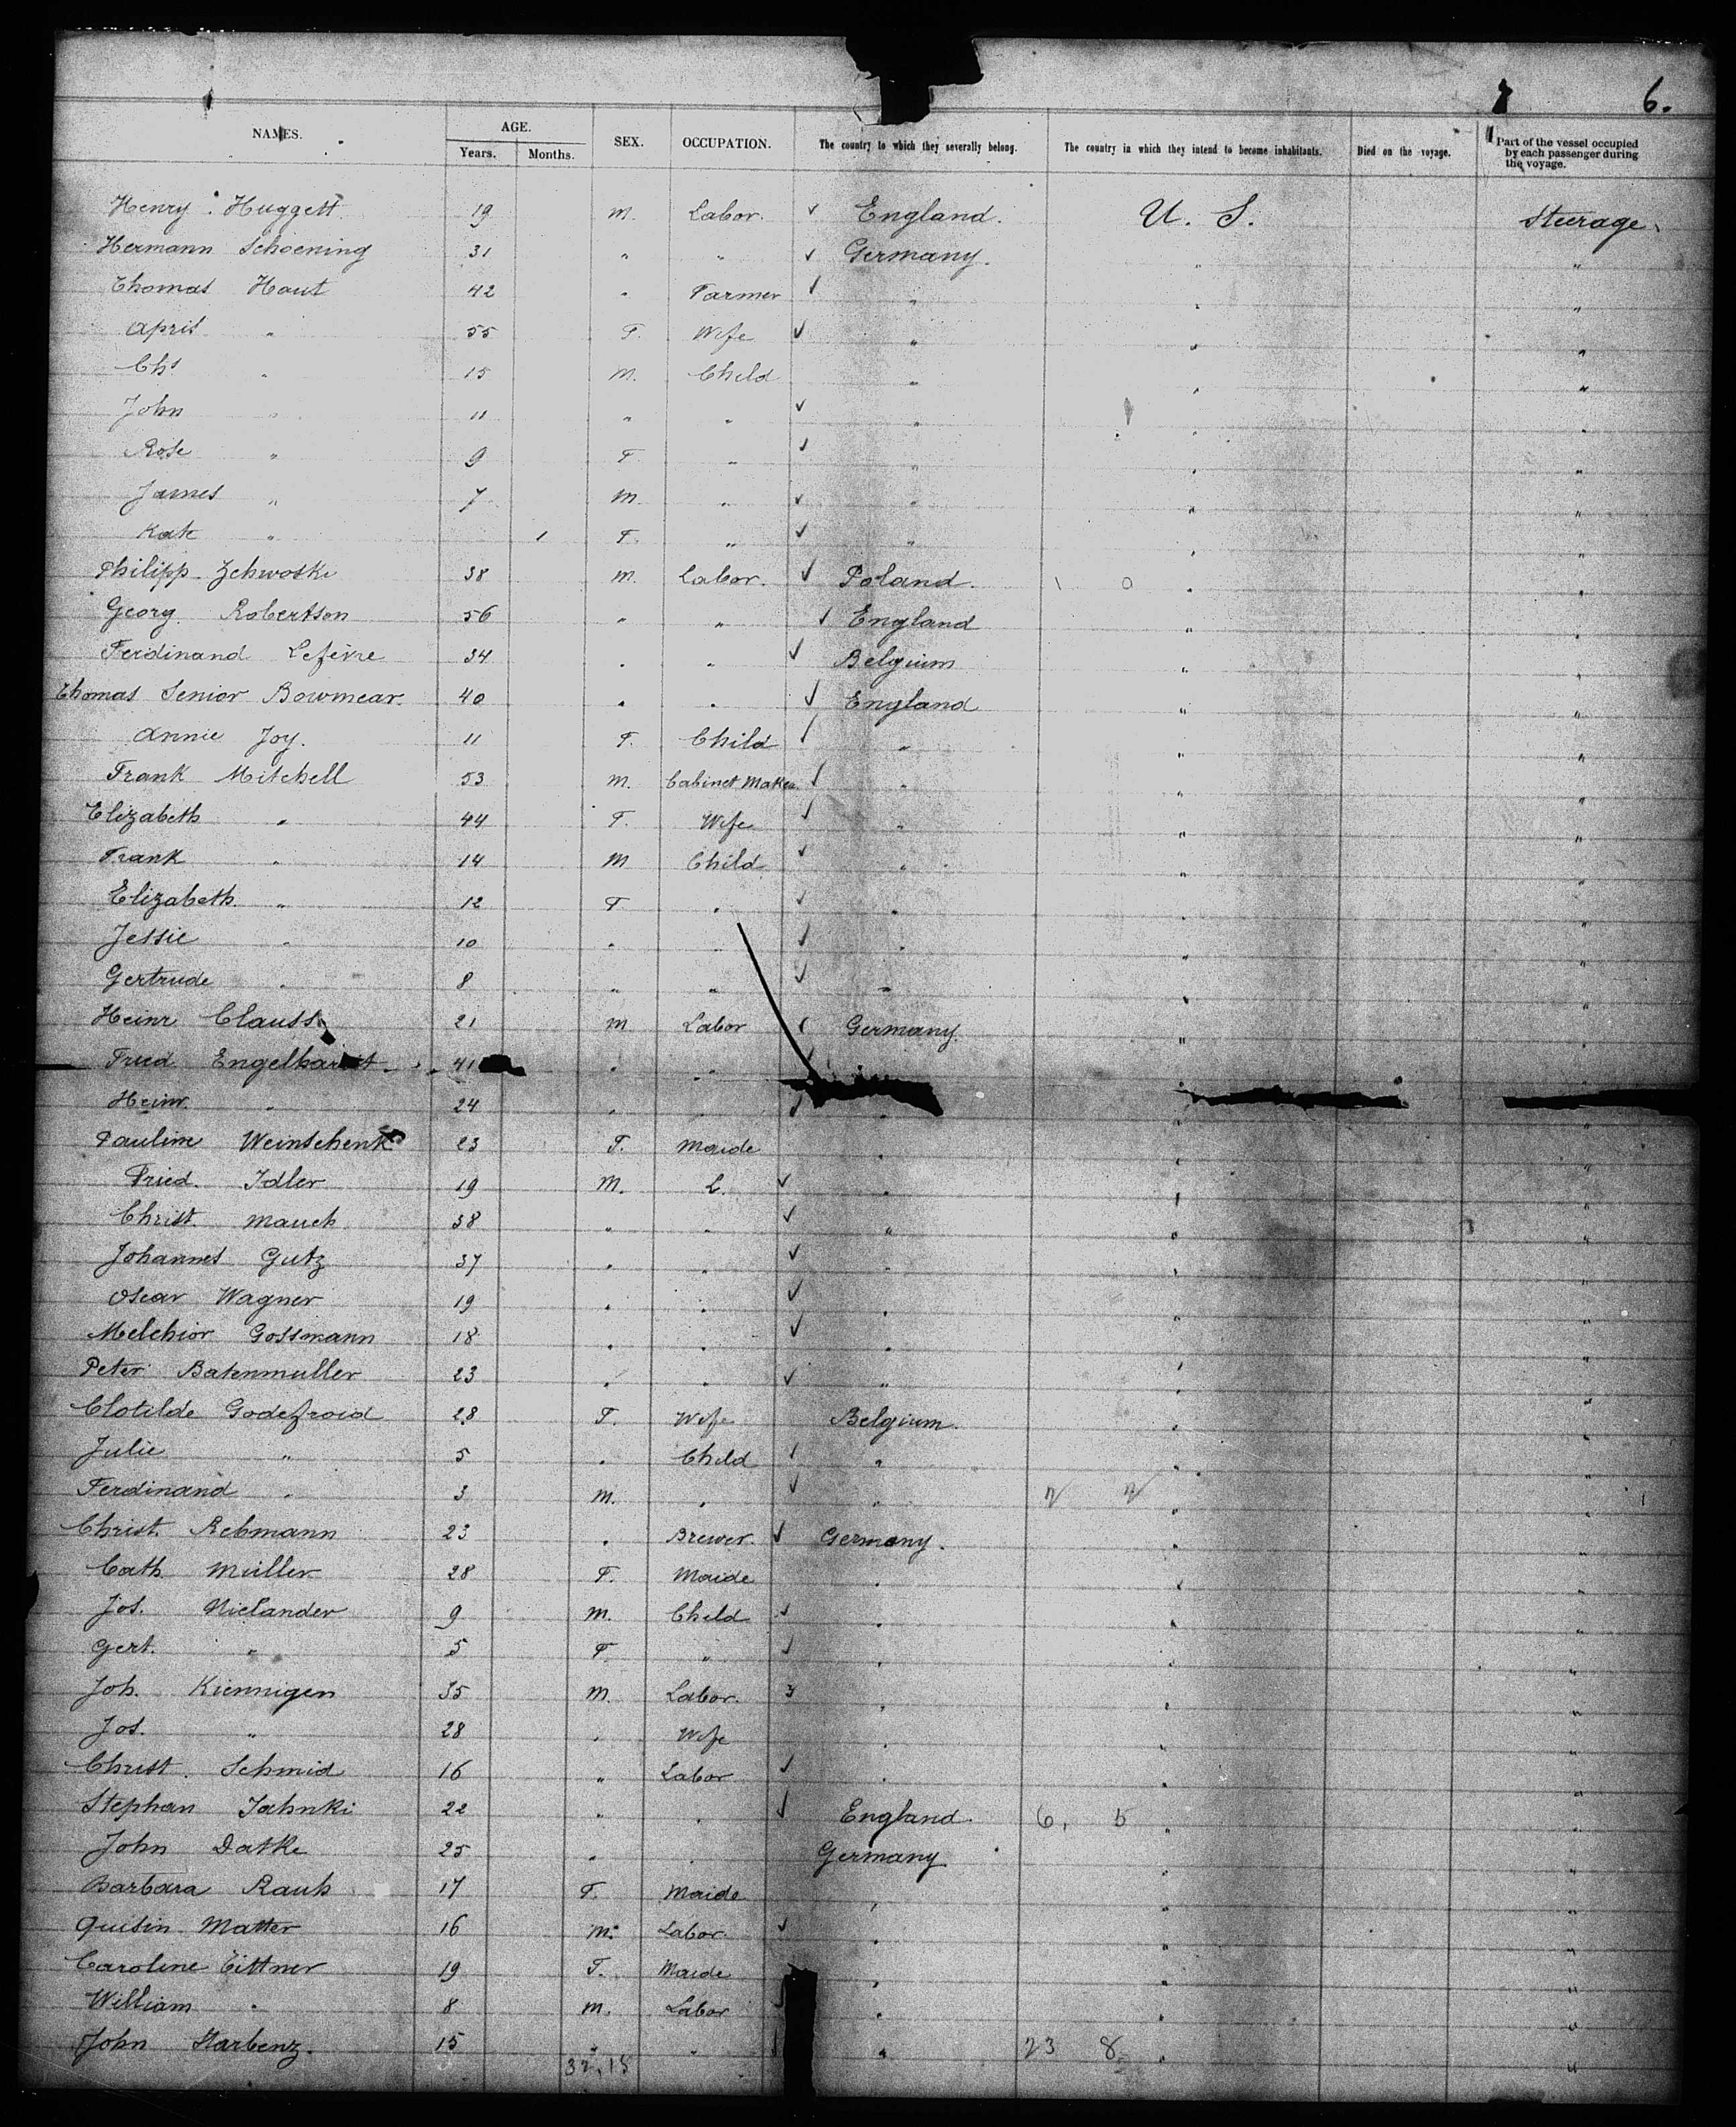 7 6.
NAMES. AGE. Years. Months. SEX. OCCUPATION. The country to which they severally belong. The country in which they intend to become inhabitants. Died on the voyage. Part of the vessel occupied by each passenger during the voyage.
Henry Huggett 19 M. Labor. ✓ England. U. S. Steerage
Hermann Schoening 31 " " ✓ Germany. " "
Thomas Haut 42 " Farmer ✓ " " "
April " 55 F. Wife ✓ " " "
Chs " 15 M. Child " " "
John " 11 " " ✓ " " "
Rose " 9 F " ✓ " " "
James " 7 M. " ✓ " " "
Kate " 1 F. " ✓ " " "
Philipp Zchwoski 38 M. Labor. ✓ Poland 1 0 " "
Georg. Robertson 56 " " ✓ England " "
Ferdinand Lefevre 34 " " ✓ Belgium " "
Thomas Senior Bowmear. 40 " " ✓ England " "
Annie Joy. 11 F. Child ✓ " " "
Frank Mitchell 53 M. Cabinet Maker ✓ " " "
Elizabeth " 44 F. Wife ✓ " " "
Frank " 14 M Child ✓ " " "
Elizabeth. " 12 F " ✓ " " "
Jessie " 10 " " ✓ " " "
Gertrude " 8 " " ✓ " " "
Heinr Clauss 21 M Labor ✓ Germany. " "
Fried Engelhardt 41 " " " "
Heinr. " 24 " " ✓ " " "
Pauline Weinschenk 23 F. Maide " " "
Fried. Idler 19 M. L. ✓ " " "
Christ. Mauch 38 " " ✓ " " "
Johannes Gutz 37 " " ✓ " " "
Oscar Wagner 19 " " ✓ " " "
Melchior Gossmann 18 " " ✓ " " "
Peter Batenmuller 23 " " ✓ " " "
Clotilde Godefroid 28 F. Wife Belgium. " "
Julie " 5 " Child ✓ " " "
Ferdinand " 3 M. " ✓ " 2 2 " "
Christ. Rebmann 23 " Brewer. ✓ Germany. " "
Cath Müller 28 F. Maide " " "
Jos. Nielander 9 M. Child ✓ " " "
Gert. " 5 F. " ✓ " " "
Joh. Kiennigen 35 M. Labor. " " "
Jos. " 28 " Wife " " "
Christ. Schmid 16 " Labor ✓ " " "
Stephan Jahnki 22 " " ✓ England 6, 5 " "
John Datke 25 " " Germany " "
Barbara Rauh 17 F. Maide " " "
Quisin Matter 16 M. Labor. ✓ " " "
Caroline Cittner 19 F. Maide " " "
William " 8 M. Labor " " "
John Harbenz. 15 " " " 23 8 " "
32, 15